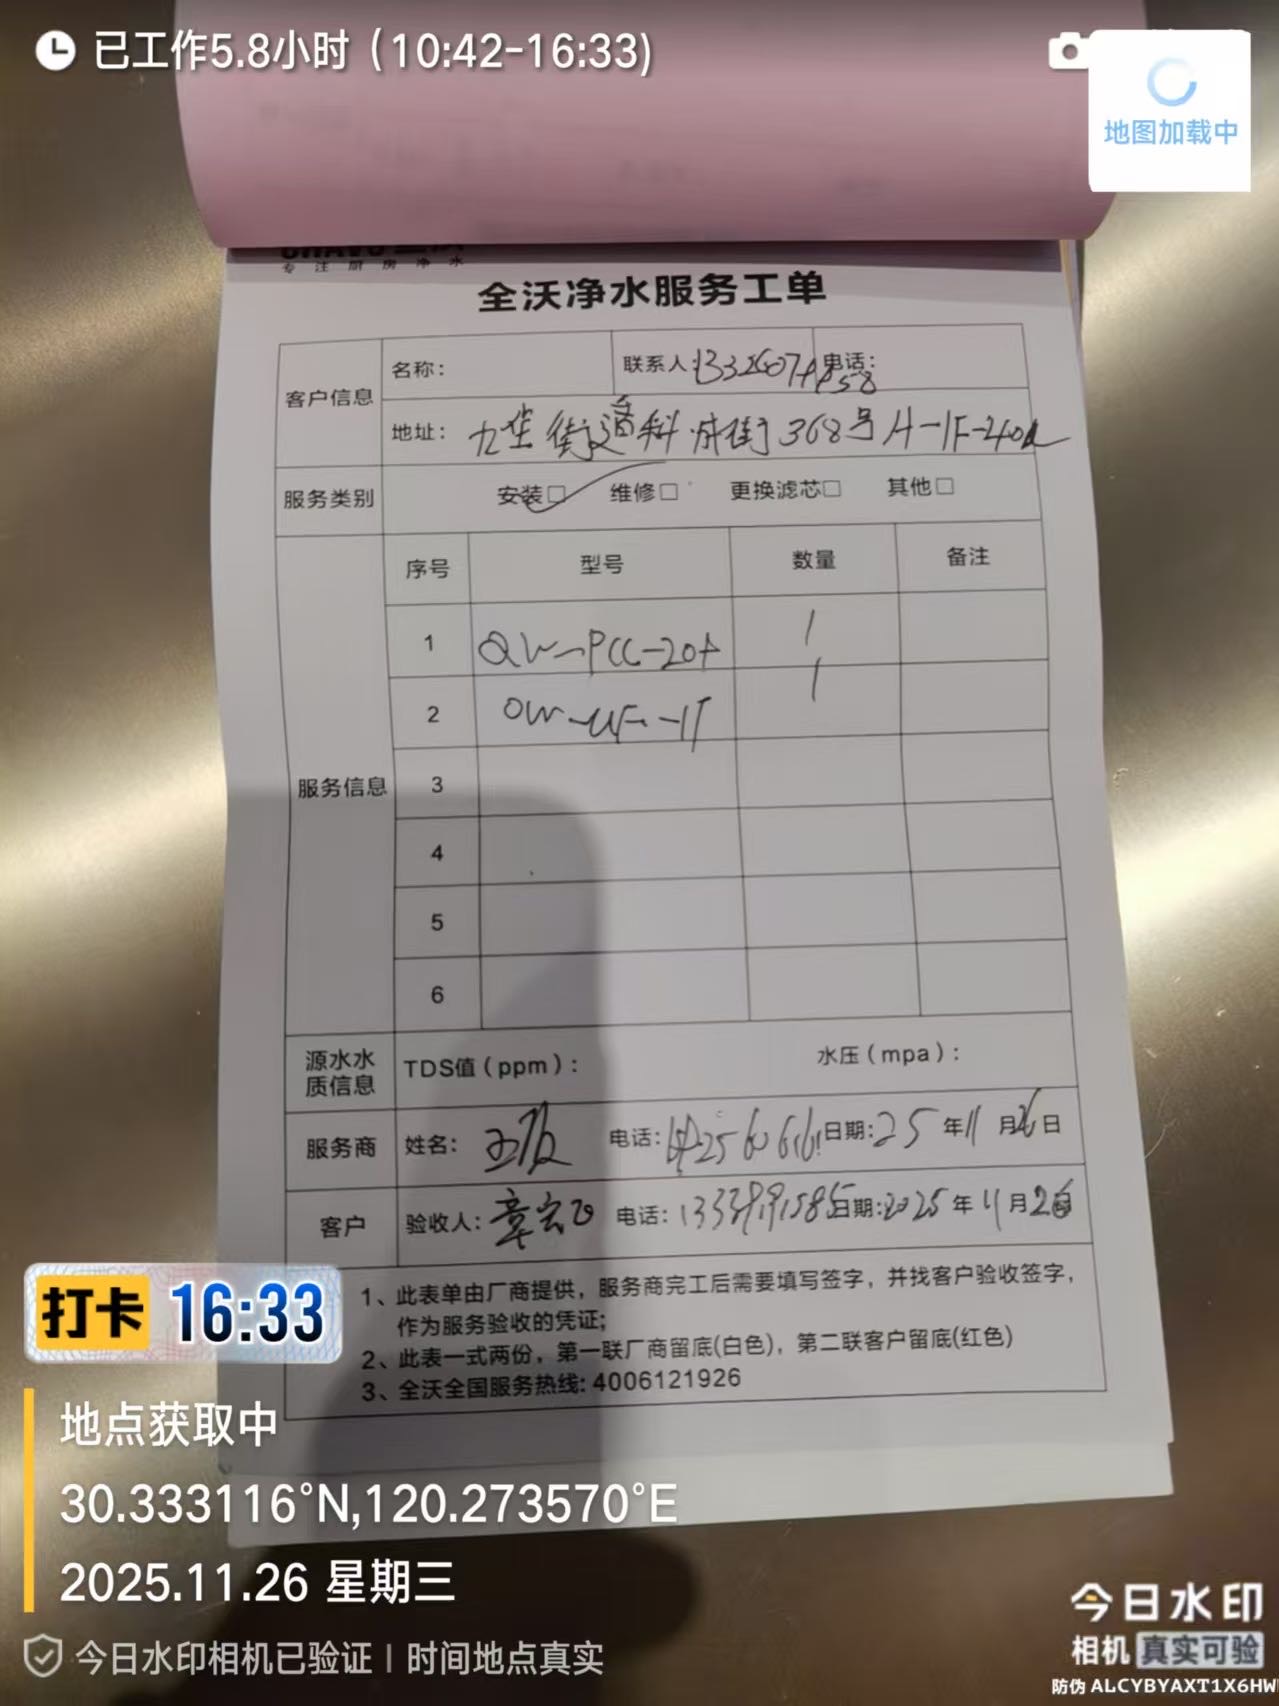 已工作5.8小时（10:42-16:33)
地图加载中
专注厨房净水
全沃净水服务工单
客户信息 名称： 联系人: 电话：
地址： 街道科 街368号A-1F-40
服务类别 安装□ 维修□ 更换滤芯□ 其他□
服务信息 序号 型号 数量 备注
1 QW-PCC-20A 1
2 OW-UF-1T 1
3
4
5
6
源水水质信息 TDS值（ppm）： 水压（mpa）：
服务商 姓名： 电话： 日期:25年11月26日
客户 验收人： 章宏 电话： 日期:2025年11月26日
1、此表单由厂商提供，服务商完工后需要填写签字，并找客户验收签字，
作为服务验收的凭证;
2、此表一式两份，第一联厂商留底(白色)，第二联客户留底(红色)
3、全沃全国服务热线: 4006121926
打卡 16:33
地点获取中
30.333116°N,120.273570°E
2025.11.26 星期三
今日水印相机已验证 | 时间地点真实
今日水印
相机 真实可验
防伪 ALCYBYAXT1X6HW